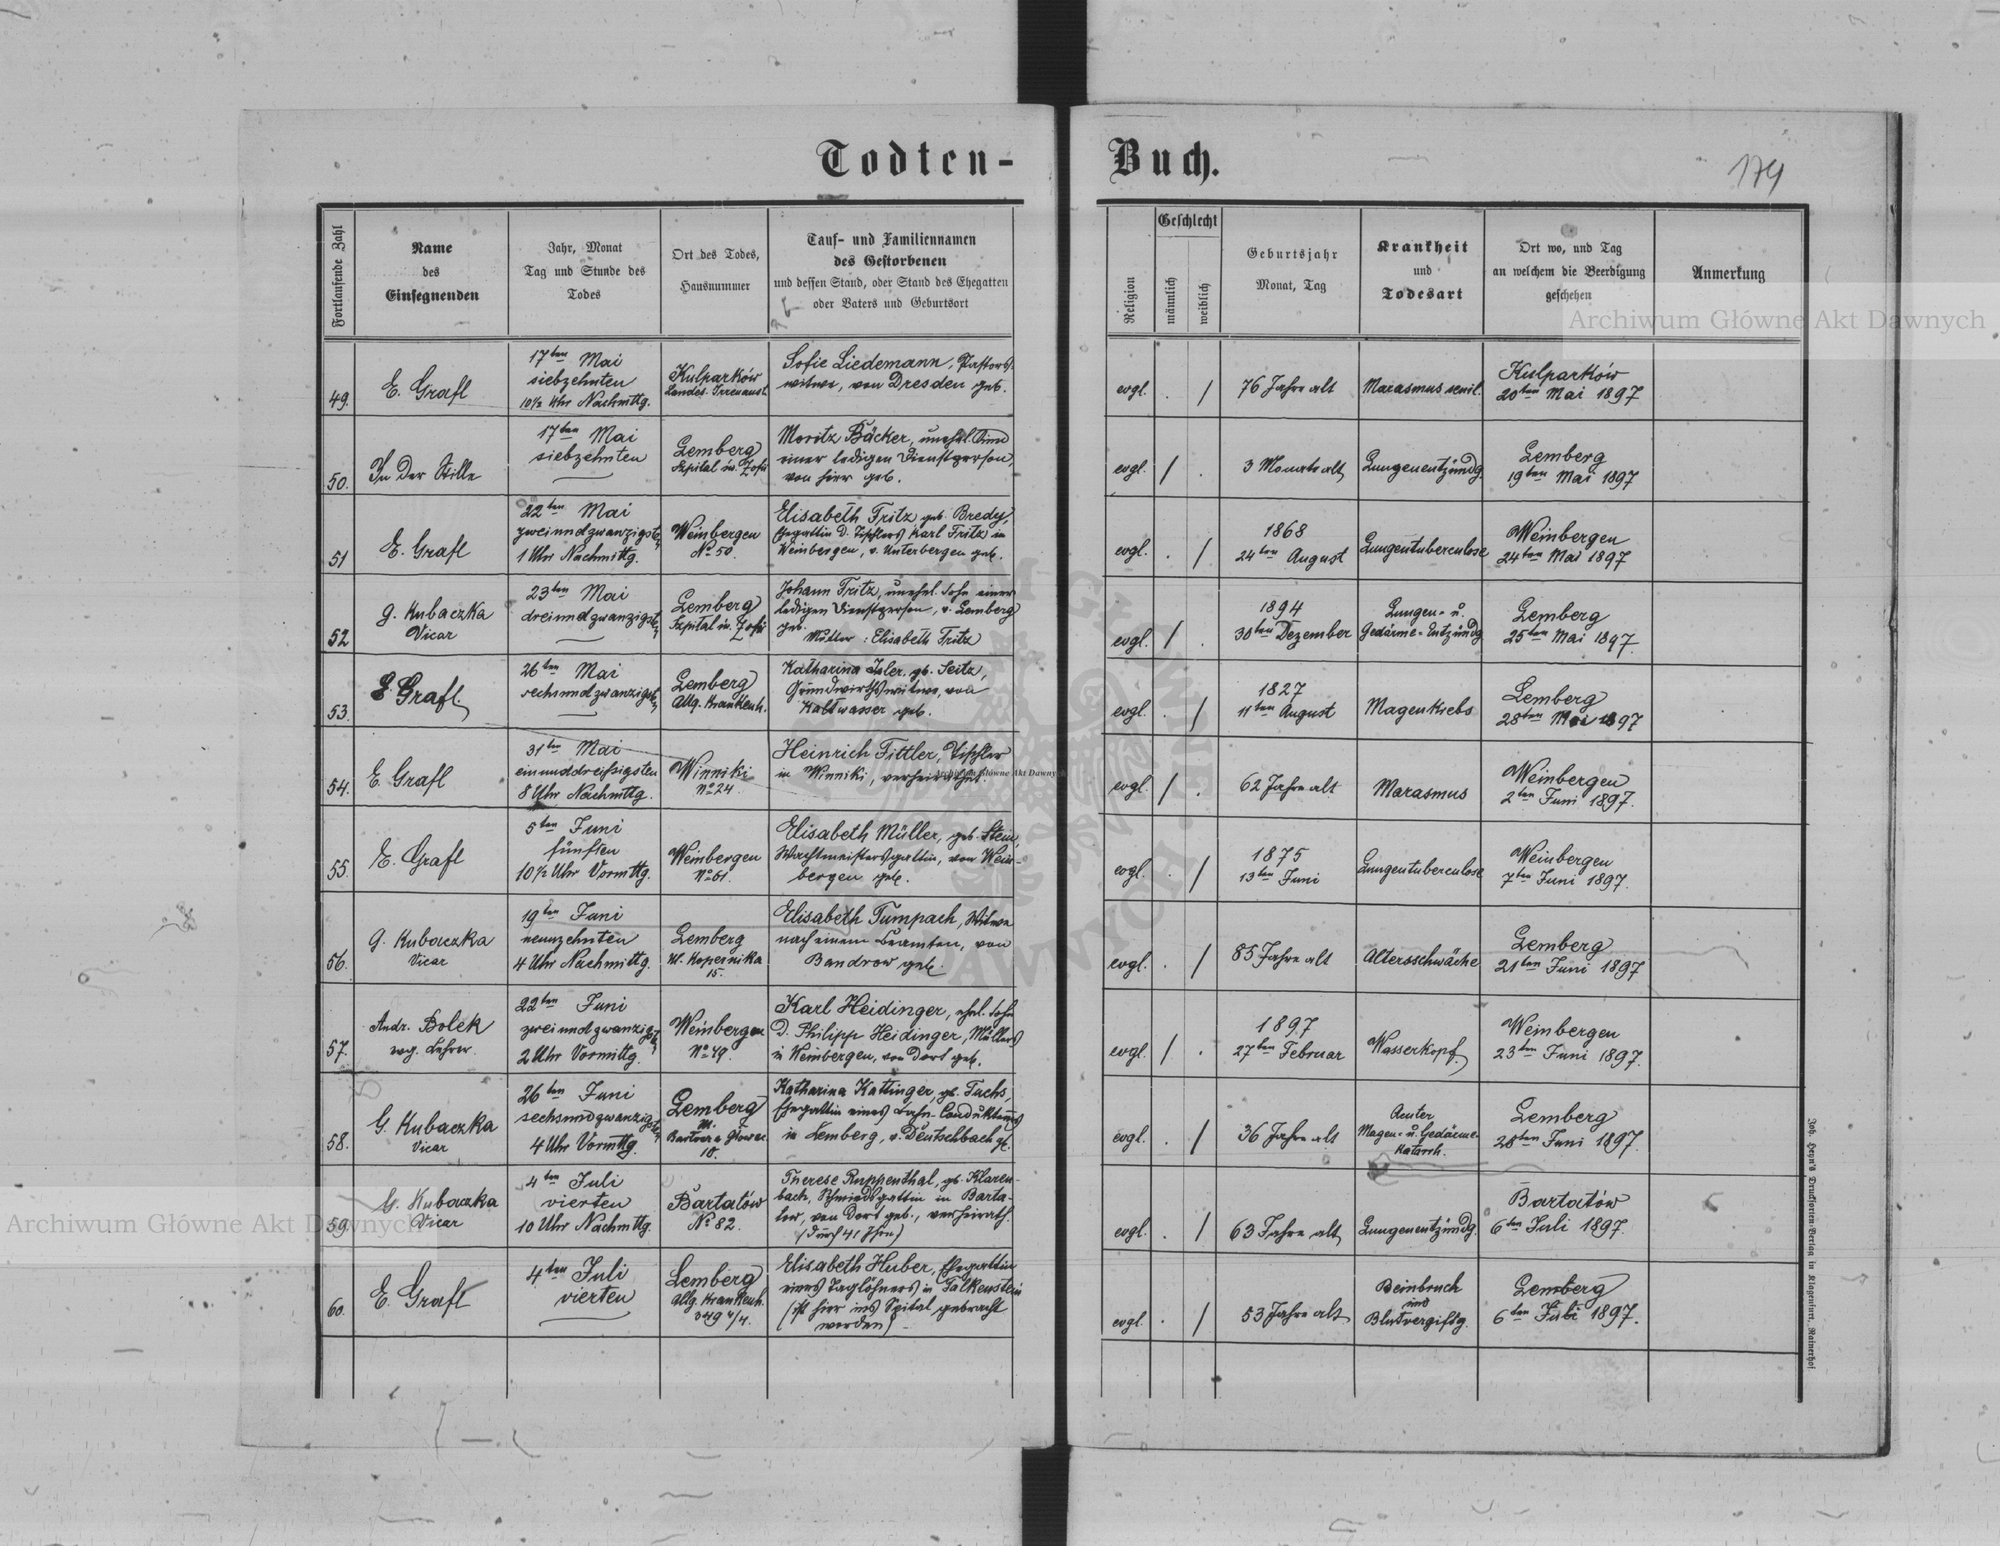 Todten-Buch.
179
Fortlaufende Zahl
Name
des
Einsegnenden
Jahr, Monat
Tag und Stunde des
Todes
Ort des Todes,
Hausnummer
Tauf- und Familiennamen
des Gestorbenen
und dessen Stand, oder Stand des Ehegatten
oder Vaters und Geburtsort
Religion
Geschlecht
männlich
weiblich
Geburtsjahr
Monat, Tag
Krankheit
und
Todesart
Ort wo, und Tag
an welchem die Beerdigung
geschehen
Anmerkung
49.
E. Grafl
17ten Mai
siebzehnten
10½ Uhr Nachmttg.
Kulparków
Landes-Irrenanst.
Sofie Liedemann, Pastors-
witwe, von Dresden geb.
evgl. . /
76 Jahre alt
Marasmus senil.
Kulparków
20ten Mai 1897
50.
In der Stille
17ten Mai
siebzehnten
Lemberg
Szpital św. Zofii
Moritz Bäcker, unehel. Kind
einer ledigen Dienstperson,
von hier geb.
evgl. / .
3 Monate alt
Lungenentzündg.
Lemberg
19ten Mai 1897
51
E. Grafl
22ten Mai
zweiundzwanzigsten
1 Uhr Nachmittg.
Weinbergen
No 50.
Elisabeth Fritz geb. Bredy,
Ehegattin d. Tischlers Karl Fritz in
Weinbergen, v. Unterbergen geb.
evgl. . /
1868
24ten August
Lungentuberculose
Weinbergen
24ten Mai 1897
52
G. Kubaczka
Vicar
23ten Mai
dreiundzwanzigsten
Lemberg
Szpital św. Zofii
Johann Fritz, unehel. Sohn einer
ledigen Dienstperson, v. Lemberg
geb.
Mutter: Elisabeth Fritz
evgl. / .
1894
30ten Dezember
Lungen- u.
Gedärme-Entzündg.
Lemberg
25ten Mai 1897.
53.
E Grafl.
26ten Mai
sechsundzwanzigsten
Lemberg
Allg. Krankenh.
Katharina Isler, gb. Seitz,
Grundwirthswitwe, von
Kaltwasser geb.
evgl. . /
1827
11ten August
Magenkrebs
Lemberg
28ten Mai 1897
54.
E Grafl
31ten Mai
einunddreißigsten
8 Uhr Nachmttg.
Winniki
No 24.
Heinrich Tittler, Tischler
in Winniki, verheirathet.
evgl. / .
62 Jahre alt
Marasmus
Weinbergen
2ten Juni 1897.
55.
E. Grafl
5ten Juni
fünften
10½ Uhr Vormttg.
Weinbergen
No 61.
Elisabeth Müller, geb. Stein,
Wachtmeistersgattin, von Wein-
bergen geb.
evgl. . /
1875
13ten Juni
Lungentuberculose
Weinbergen
7ten Juni 1897.
56.
G. Kubaczka
Vicar
19ten Juni
neunzehnten
4 Uhr Nachmittg.
Lemberg
ul. Kopernika
15.
Elisabeth Tumpach, Witwe
nach einem Beamten, von
Bandrow geb.
evgl. . /
85 Jahre alt
Altersschwäche
Lemberg
21ten Juni 1897
57.
Andr. Bolek
evg. Lehrer.
22ten Juni
zweiundzwanzigsten
2 Uhr Vormittg.
Weinbergen
No 49.
Karl Heidinger, ehel. Sohn
d. Philipp Heidinger, Müllers
in Weinbergen, von dort geb.
evgl. / .
1897
27ten Februar
Wasserkopf
Weinbergen
23ten Juni 1897.
58.
G. Kubaczka
Vicar
26ten Juni
sechsundzwanzigsten
4 Uhr Vormttg.
Lemberg
ul.
10.
Katharina Kattinger, gb. Fuchs,
Ehegattin eines Bahn-Condukteurs
in Lemberg, v. Deutschbach gb.
evgl. . /
36 Jahre alt
Acuter
Magen- u. Gedärme-
Katarrh.
Lemberg
28ten Juni 1897.
59.
G. Kubaczka
Vicar
4ten Juli
vierten
10 Uhr Nachmttg.
Bartatów
No 82.
Therese Ruppenthal, gb. Klaren-
bach, Schmiedsgattin in Barta-
tow, von dort geb., verheirath.
(durch 41 Jhre)
evgl. . /
63 Jahre alt
Lungenentzündg.
Bartatów
6ten Juli 1897.
60.
E. Grafl
4ten Juli
vierten
Lemberg
Allg. Krankenh.
Elisabeth Huber, Ehegattin
eines Taglöhners in Falkenstein
(ist hier ins Spital gebracht
worden)
evgl. . /
53 Jahre alt
Beinbruch
und
Blutvergiftg.
Lemberg
6ten Juli 1897.
Joh. Heyn's Drucksorten-Verlag in Klagenfurt, Rainerhof.
Archiwum Główne Akt Dawnych
Archiwum Główne Akt Dawnych
Archiwum Główne Akt Dawnych